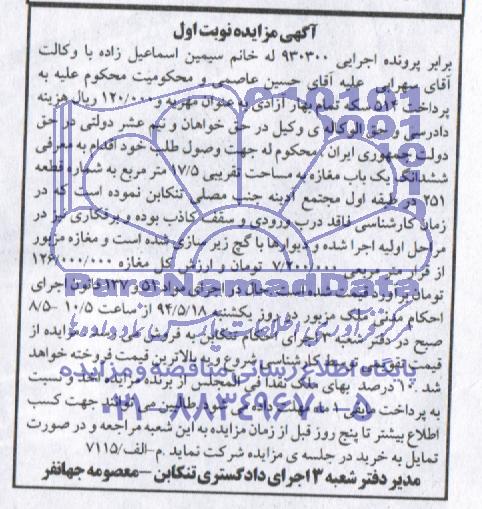 آگهی مزایده نوبت اول
برابر پرونده اجرایی ۹۳۰۳۰۰ له خانم سیمین اسماعیل زاده با وکالت
آقای سهرابی علیه آقای حسین عاصمی و محکومیت محکوم علیه به
پرداخت ۵۱۴ سکه تمام بهار آزادی به عنوان مهریه و ۱۲۰/۰۰۰ ریال هزینه
دادرسی و حق الوکاله ی وکیل در حق خواهان و نیم عشر دولتی در حق
دولت جمهوری ایران، محکوم له جهت وصول طلب خود اقدام به معرفی
ششدانگ یک باب مغازه به مساحت تقریبی ۱۷/۵ متر مربع به شماره قطعه
۲۵۱ در طبقه اول مجتمع آدینه جنب مصلی تنکابن نموده است که در
زمان کارشناسی فاقد درب ورودی و سقف کاذب بوده و برقکاری نیز در
مراحل اولیه اجرا شده و دیوارها با گچ زیر سازی شده است و مغازه مزبور
از قرار متر مربعی ۷/۲۰۰/۰۰۰ تومان و ارزش کل مغازه ۱۲۶/۰۰۰/۰۰۰
تومان برآورد قیمت شده است حال در اجرای مواد ۵۱ و ۱۳۷ قانون اجرای
احکام مدنی ملک مزبور در روز یکشنبه ۹۴/۵/۱۸ از ساعت ۱۰/۵ -۸/۵
صبح در دفتر شعبه ۳ اجرای احکام تنکابن به فروش می رسد. مزایده از
قیمت تقویمی توسط کارشناسی شروع و به بالاترین قیمت فروخته خواهد
شد. ۱۰ درصد بهای ملک نقدا فی المجلس از برنده مزایده اخذ و نسبت
به پرداخت مابقی ۱ ماه مهلت داده می شود طالبین می توانند جهت کسب
اطلاع بیشتر تا پنج روز قبل از زمان مزایده به این شعبه مراجعه و در صورت
تمایل به خرید در جلسه ی مزایده شرکت نماید. م-الف/۷۱۱۵
مدیر دفتر شعبه ۳ اجرای دادگستری تنکابن – معصومه جهانفر
ParsNamadData
مرکز فرآوری اطلاعات پارس نماد داده ها
پایگاه اطلاع رسانی مناقصه و مزایده
۰۲۱-۸۸۳۴۹۶۷۰-۵